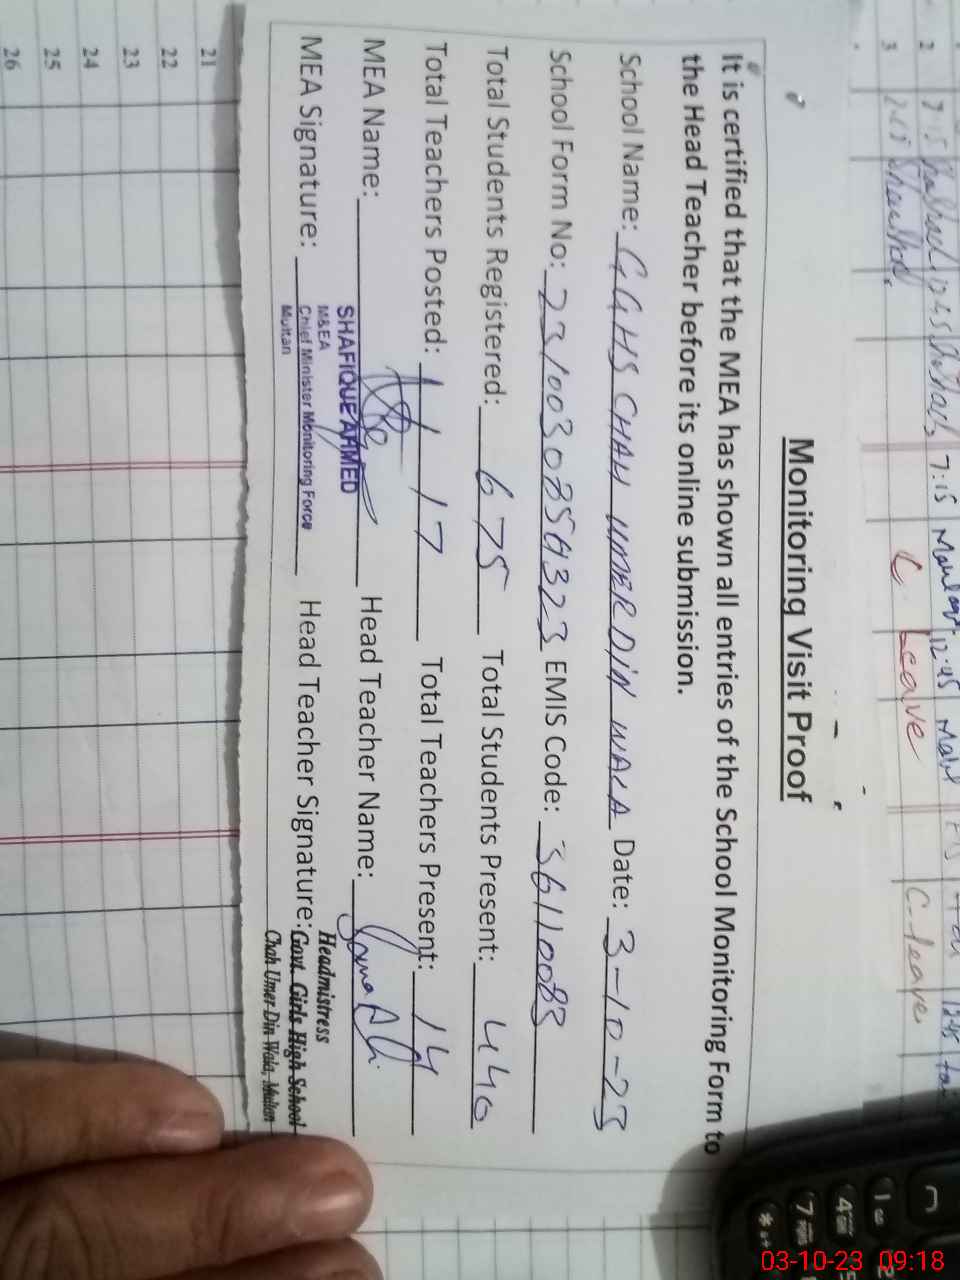 Monitoring Visit Proof
It is certified that the MEA has shown all entries of the School Monitoring Form to
the Head Teacher before its online submission.
School Name: GGHS CHAH UMER DIN WALA Date: 3-10-23
School Form No: EMIS Code: 36110083
Total Students Registered: 675 Total Students Present: 446
Total Teachers Posted: 17 Total Teachers Present: 14
MEA Name: Head Teacher Name:
SHAFIQUE AHMED
MEA Signature: Head Teacher Signature:
M&EA
Chief Minister Monitoring Force
Multan
Headmistress
Govt. Girls High School
Chah Umer Din Wala, Multan
2 7:15 12:45 7:15 12:45
3 C Leave C-leave
21
22
23
24
25
26
1
4
7
*
03-10-23 09:18